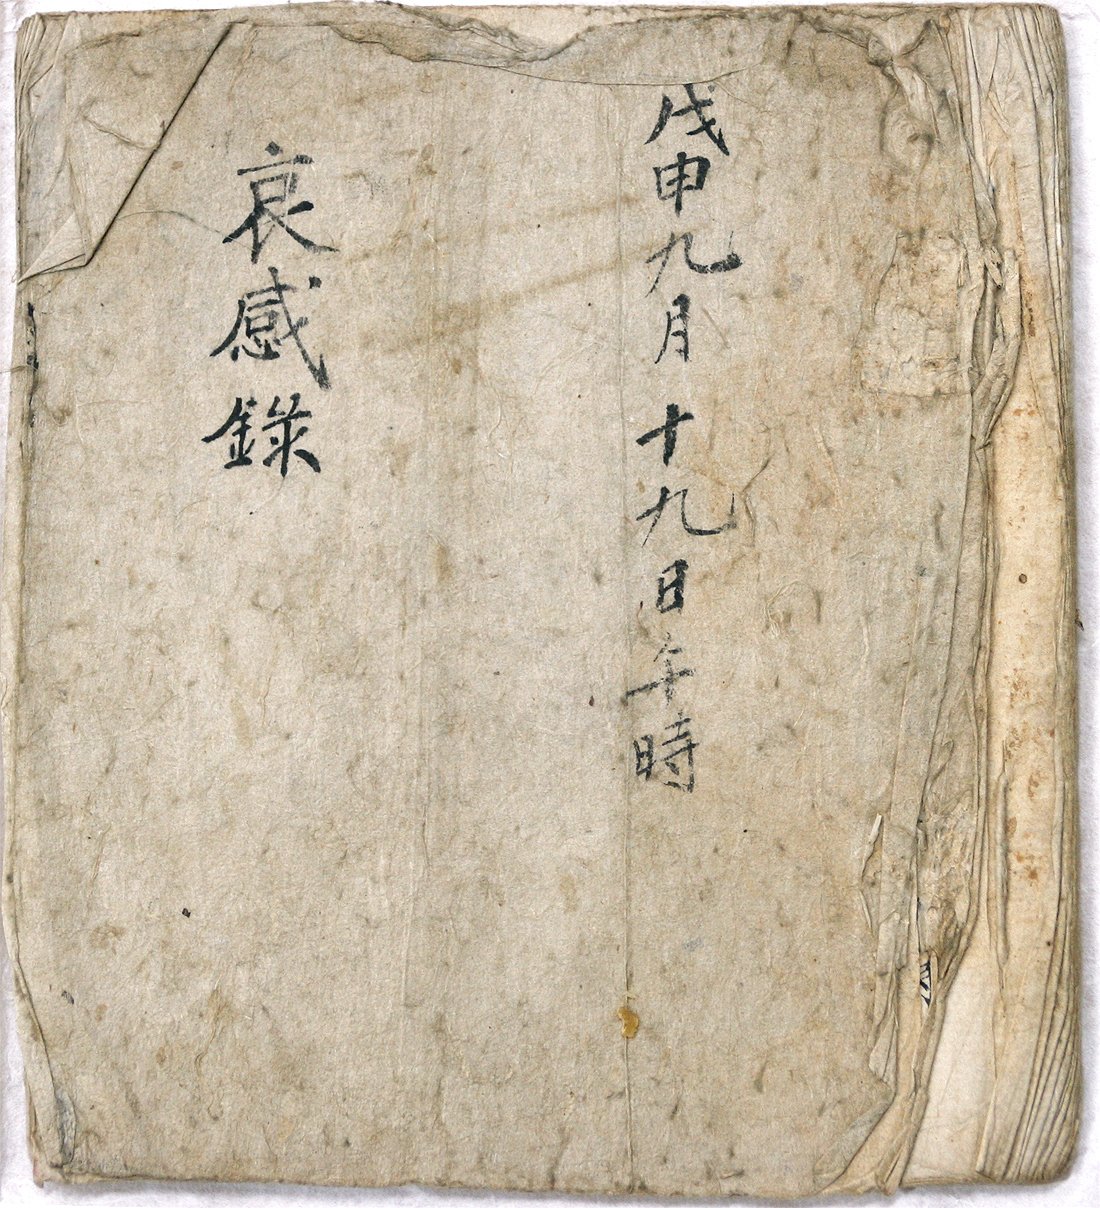 戊申九月十九日午時
哀感錄